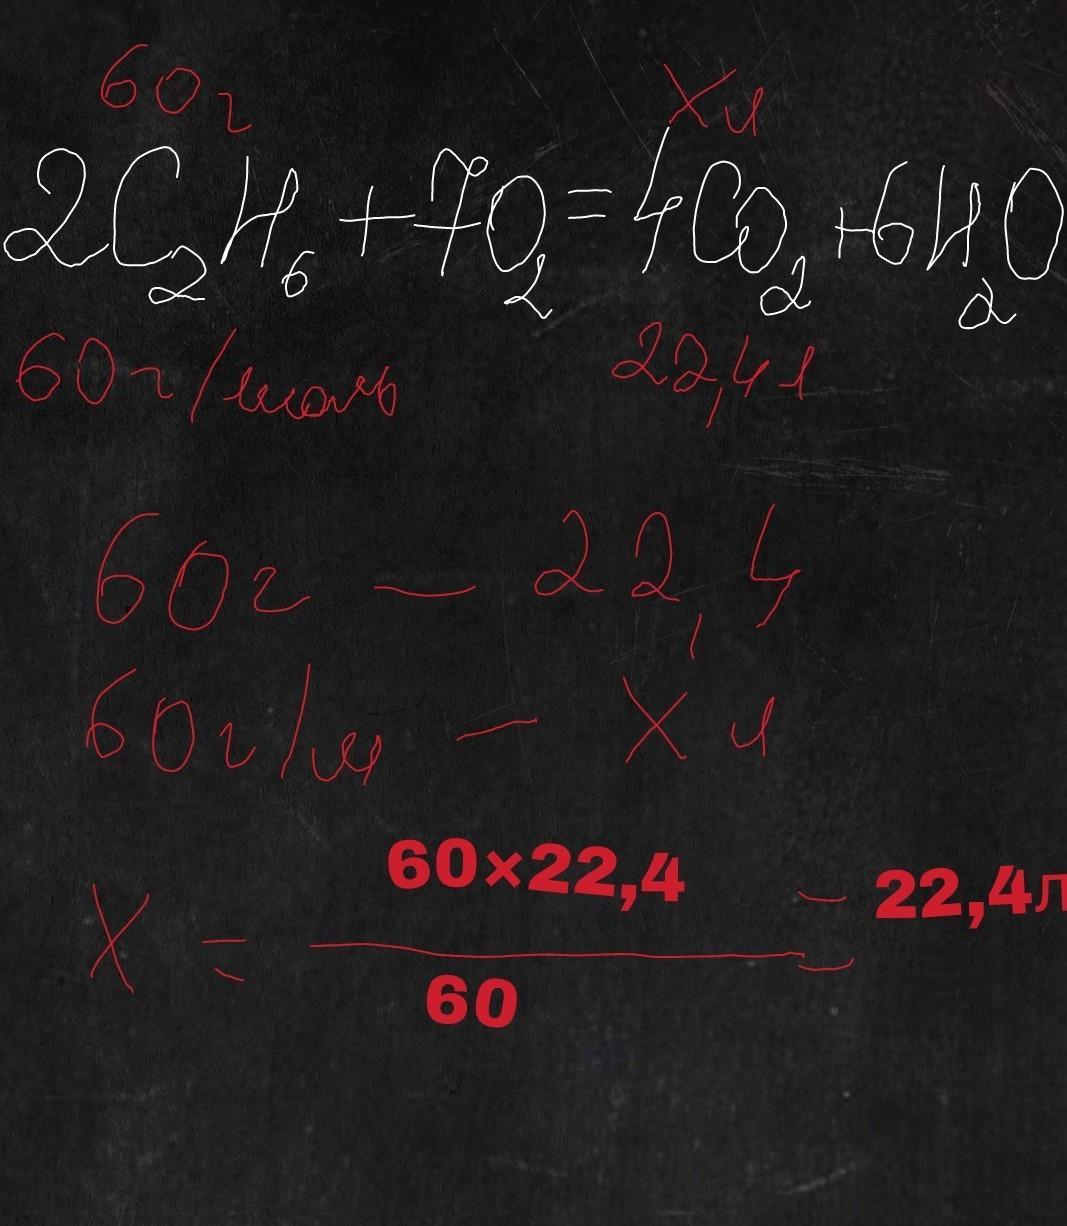 60г Xл
2C₂H₆+7O₂=4CO₂+6H₂O
60г/моль 22,4л
60г — 22,4
60г/м — X л
X = 60×22,4 / 60 = 22,4л